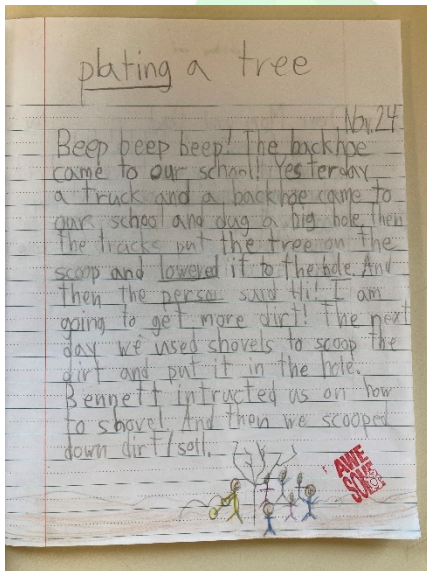 plating a tree
Nov. 24
Beep beep beep! The backhoe
came to our school! Yesterday
a truck and a backhoe came to
our school and dug a big hole, then
the trucks put the tree on the
scoop and lowered it to the hole. And
then the person said Hi! I am
going to get more dirt! The next
day we used shovels to scoop the
dirt and put it in the hole.
Bennett intructed us on how
to shovel. And then we scooped
down dirt/soil.
AWE
SOME